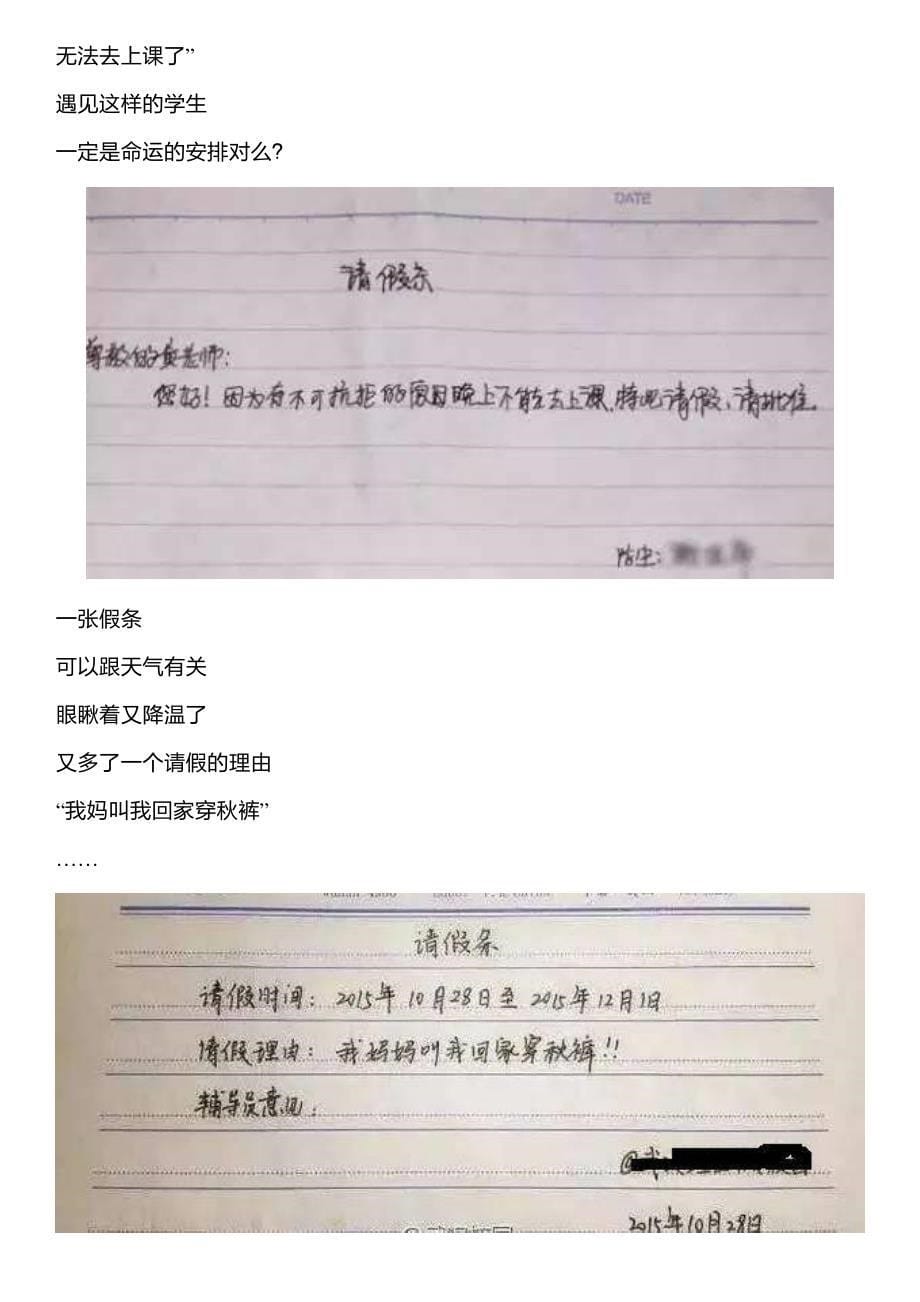 无法去上课了”
遇见这样的学生
一定是命运的安排对么?
DATE
请假条
尊敬的黄老师:
您好!因为有不可抗拒的原因晚上不能去上课,特此请假,请批准。
一张假条
可以跟天气有关
眼瞅着又降温了
又多了一个请假的理由
“我妈叫我回家穿秋裤”
……
请假条
请假时间:2015年10月28日至2015年12月1日
请假理由:我妈妈叫我回家穿秋裤!!
辅导员意见:
2015年10月28日